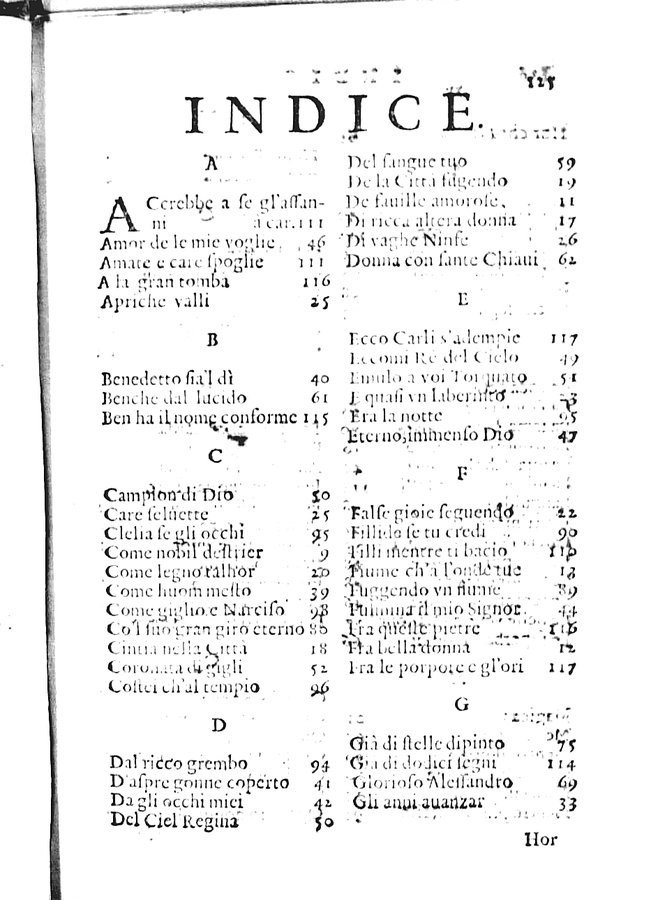 125
INDICE.
A
ACerebbe a se gl'aſſan-
ni a car. 111
Amor de le mie voglie 46
Amate e care ſpoglie 111
A la gran tomba 116
Apriche valli 25
B
Benedetto ſia'l dì 40
Benche dal lucido 61
Ben ha il nome conforme 115
C
Campion di Dio 50
Care ſeluette 25
Clelia ſe gli occhi 95
Come nobil deſtrier 9
Come legno talhor 20
Come huom meſto 39
Come giglio e Narciſo 98
Co'l ſuo gran giro eterno 80
Cintia nella Città 18
Coronata di gigli 52
Coſtei ch'al tempio 96
D
Dal ricco grembo 94
D'aſpre gonne coperto 41
Da gli occhi miei 42
Del Ciel Regina 50
Del ſangue tuo 59
De la Città fugendo 19
De fauille amoroſe 11
Di ricca altera donna 17
Di vaghe Ninfe 26
Donna con ſante Chiaui 62
E
Ecco Carli s'adempie 117
Eccomi Rè del Cielo 49
Emulo a voi Torquato 51
E quaſi vn laberinto 23
Era la notte 95
Eterno, immenſo Dio 47
F
Falſe gioie ſeguendo 22
Fillide ſe tu credi 90
Filli mentre ti bacio 110
Fiume ch'a l'onde tue 13
Fuggendo vn fiume 89
Fulmina il mio Signor 44
Fra queſte pietre 116
Fra bella donna 12
Fra le porpore e gl'ori 117
G
Già di ſtelle dipinto 75
Gia di dodici ſegni 114
Glorioſo Aleſſandro 69
Gli anni auanzar 33
Hor